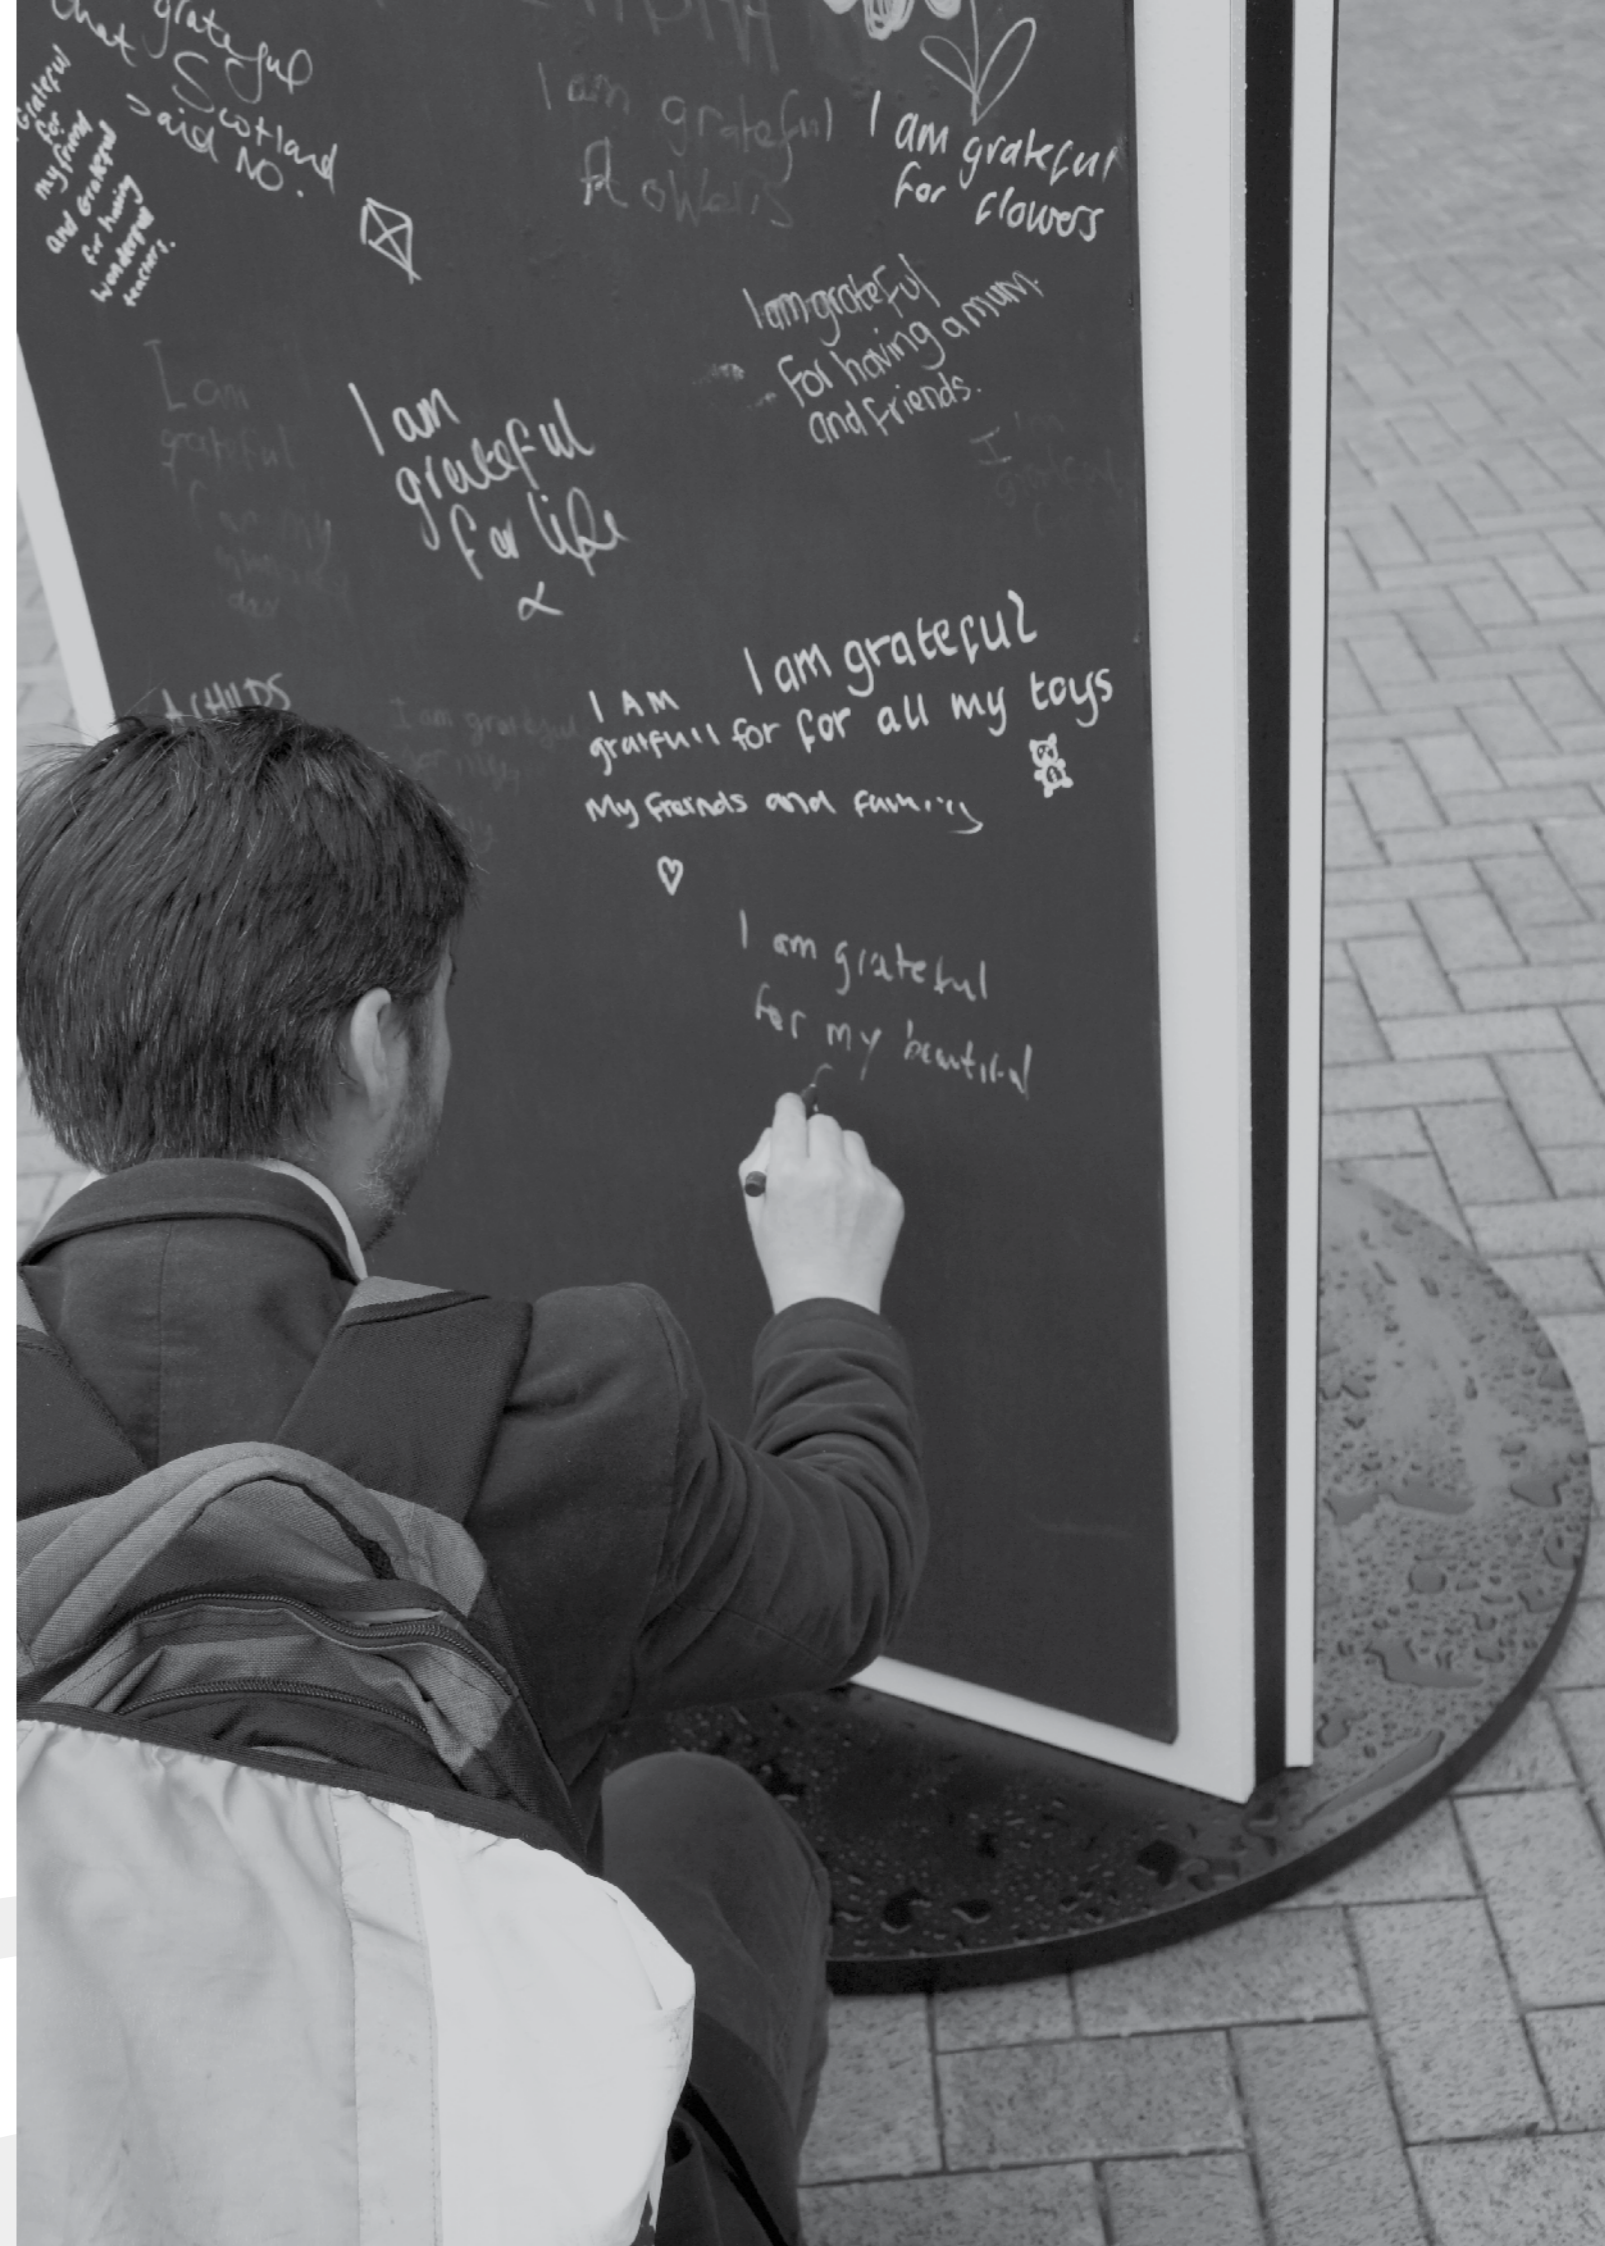 grateful
that
Scotland
said NO.
Grateful
for
my friend
and Grateful
for having
wonderful
teachers.
I am grateful
flowers
I am grateful
for flowers
I am grateful
for having a mum
and friends.
I am
grateful
for my
I am
grateful
for life
I'm
grateful
A CHILDS
I am grateful
for my
I am grateful
for all my toys
I AM
gratfull for
My freinds and family
I am grateful
for my beautiful